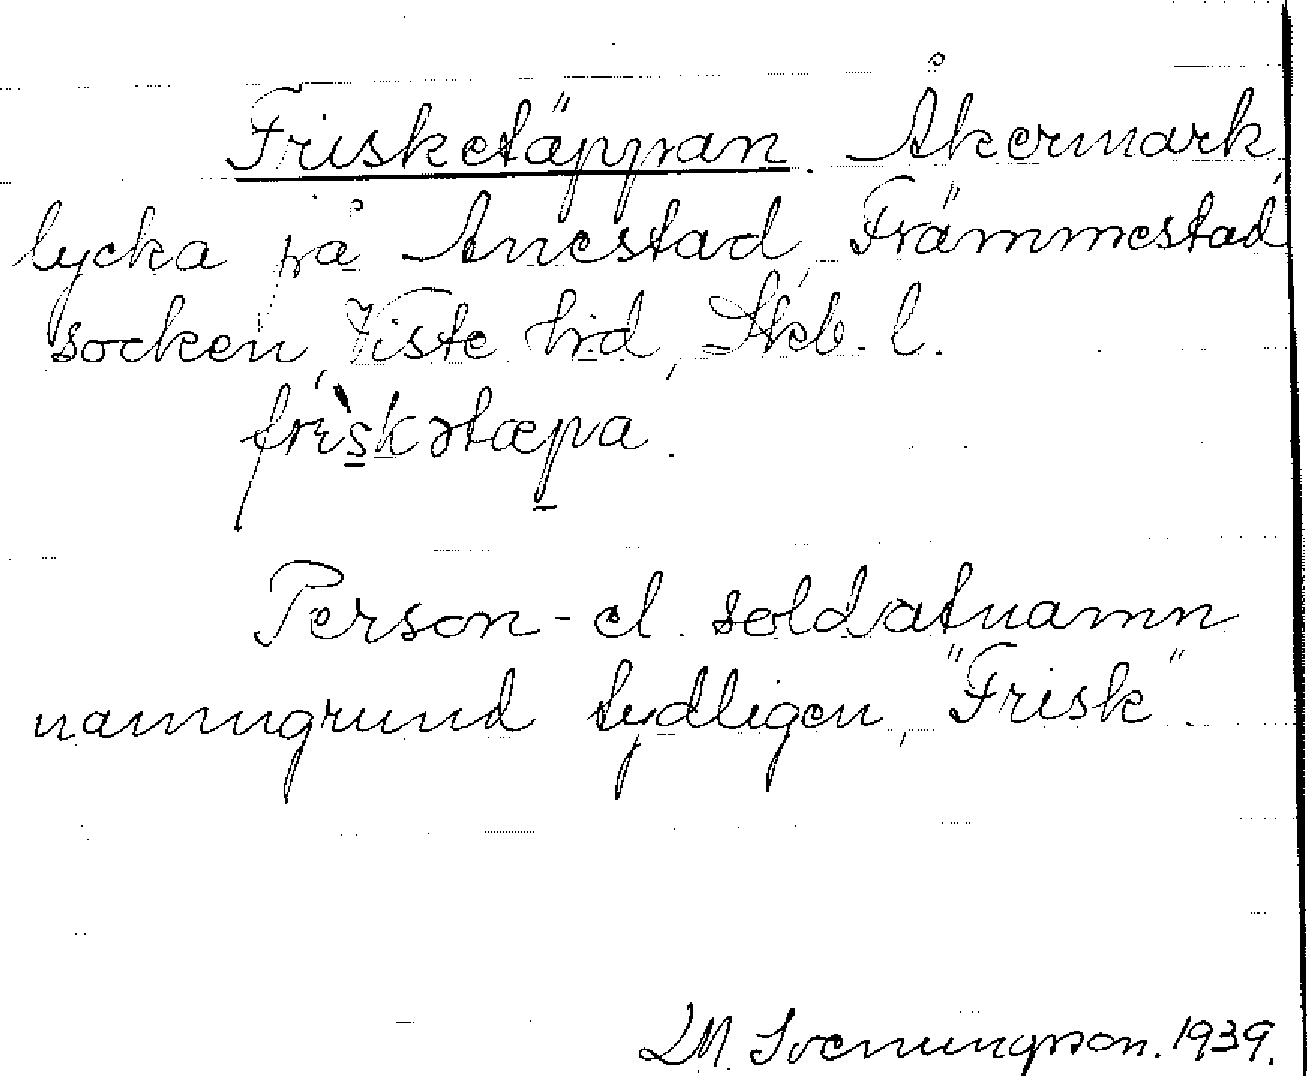 Frisketäppan. Åkermark,
lycka på Anestad, Främmestad
socken, Viste hd, Skb. l.
frìskətæpa.
Person- el. soldatnamn
namngrund tydligen, "Frisk".
LM. Svenungsson. 1939.